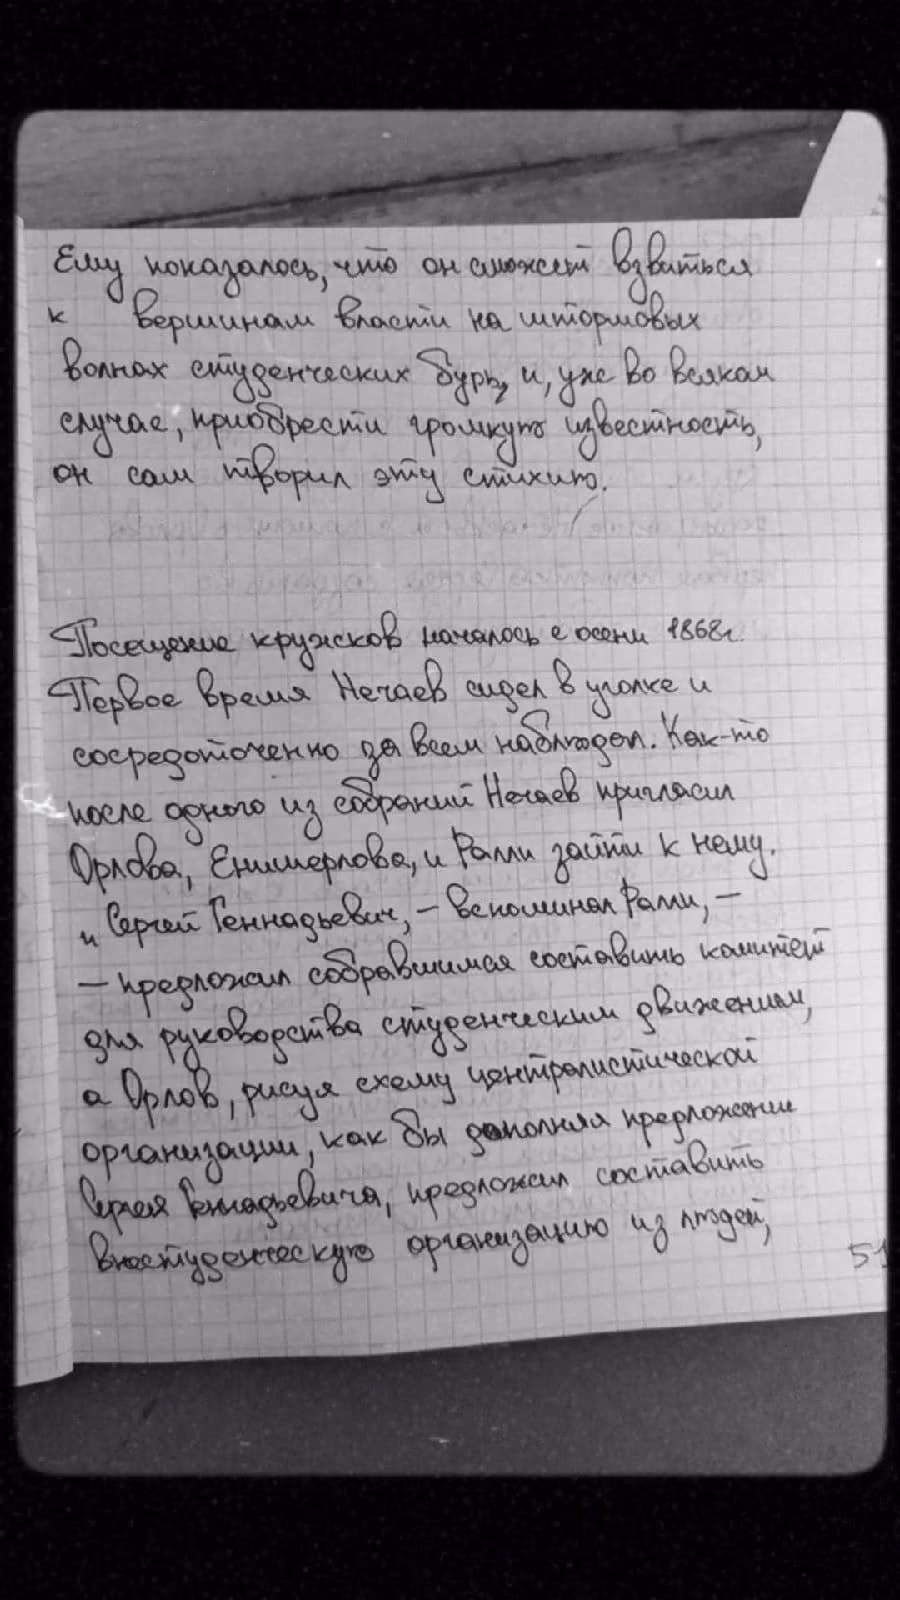 Ему показалось, что он сможет взвиться
к вершинам власти на штормовых
волнах студенческих бурь, и, уже во всяком
случае, приобрести громкую известность,
он сам творил эту стихию.
Посещение кружков началось с осени 1868г.
Первое время Нечаев сидел в уголке и
сосредоточенно за всем наблюдал. Как-то
после одного из собраний Нечаев пригласил
Орлова, Енишерлова, и Ралли зайти к нему.
„Сергей Геннадьевич, – вспоминал Ралли, –
– предложил собравшимся составить комитет
для руководства студенческим движением,
а Орлов, рисуя схему централистической
организации, как бы дополняя предложение
Сергея Геннадьевича, предложил составить
внестуденческую организацию из людей,
51